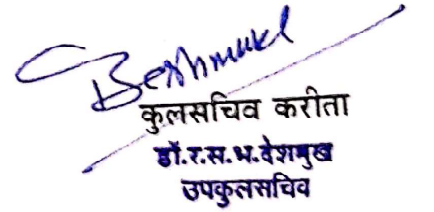 कुलसचिव करीता
डॉ.र.स.भ.देशमुख
उपकुलसचिव